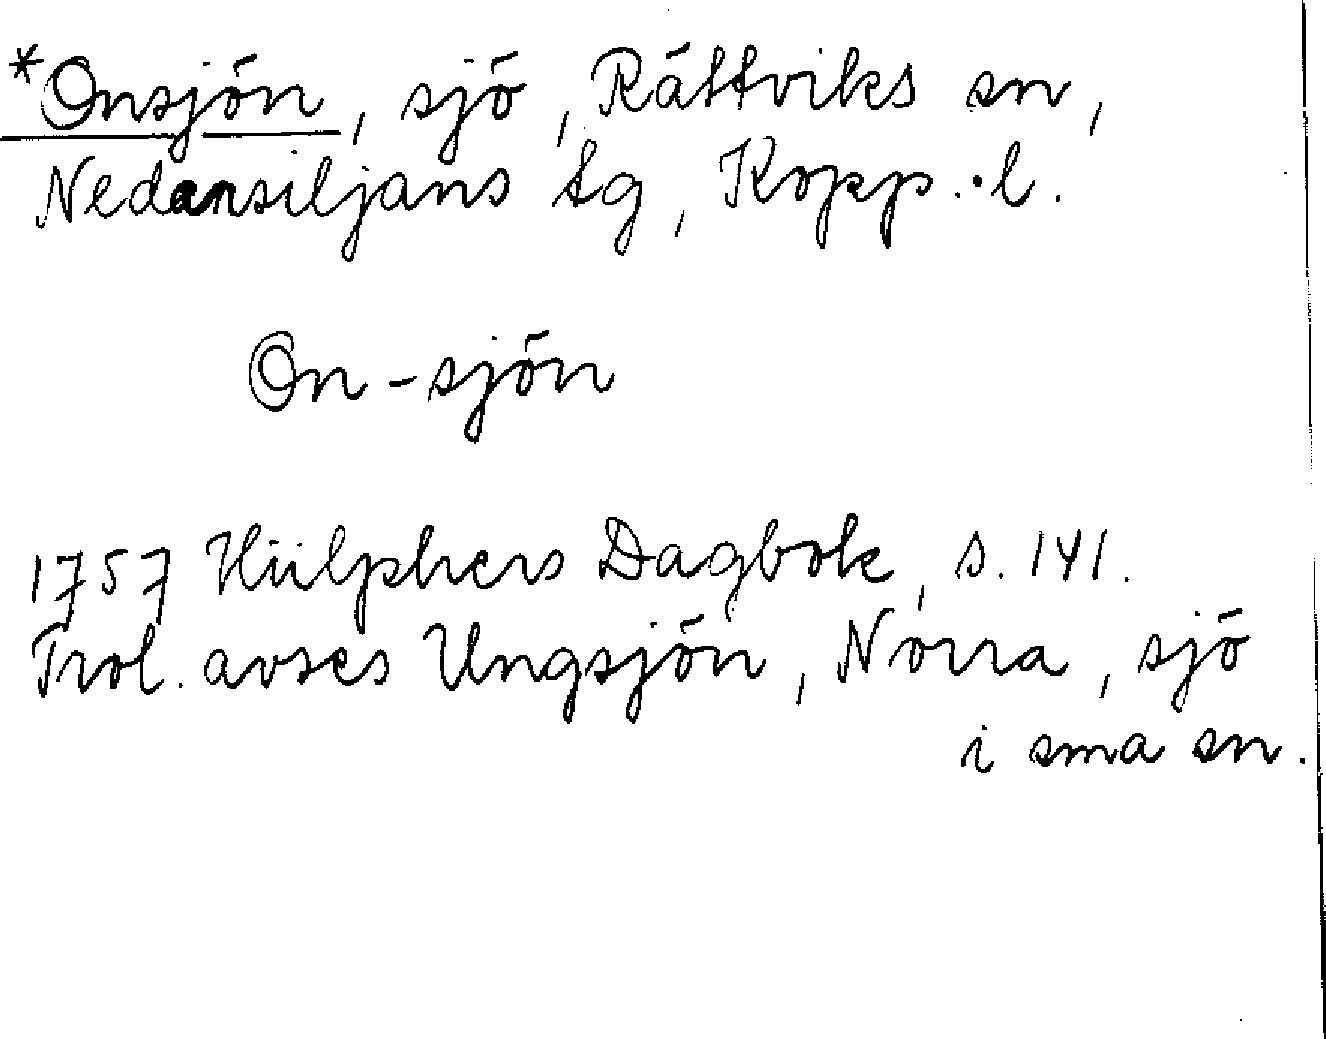 *Onsjön, sjö, Rättviks sn,
Nedansiljans tg, Kopp.l.
On-sjön
1757 Hülphers Dagbok, s. 141.
Trol. avses Ungsjön, Norra, sjö
i sma sn.